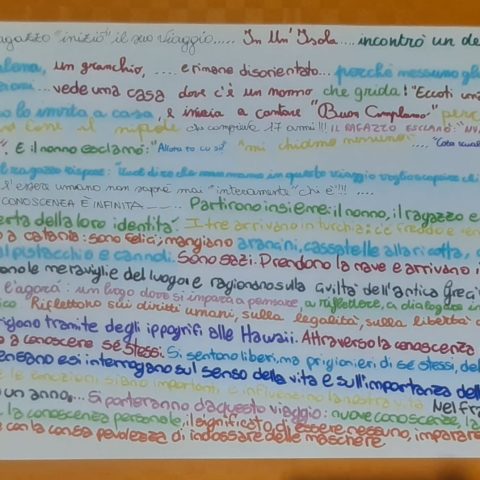 ragazzo "iniziò" il suo viaggio..... In Un' Isola.... incontrò un de
balena, un granchio, .... e rimane disorientato... perché nessuno gli
... vede una casa dove c'è un nonno che grida! "Eccoti una
lo invita a casa, e inizia a cantare "Buon Compleanno" per
come il nipote che compirebbe 17 anni!!! IL RAGAZZO ESCLAMÒ: "NU
". E il nonno esclamò: "Allora tu chi sei?" "mi chiamo nessuno" .... "Cosa
il ragazzo rispose: "Vuol dire che in questo viaggio voglio scoprire chi
l'essere umano non saprà mai "interamente" chi è!!! ....
CONOSCENZA È INFINITA ...... Partirono insieme: il nonno, il ragazzo e
erta della loro identità. I tre arrivano in turchia: c'è freddo e
a catania: sono felici; mangiano arancini, cassatelle alla ricotta,
al pistacchio e cannoli. Sono sazi. Prendono la nave e arrivano i
ono le meraviglie del luogo e ragionano sulla civiltà dell'antica Greci
l'agorà: un luogo dove si impara a pensare, a riflettere, a dialogare in
ico. Riflettono sui diritti umani, sulla legalità, sulla libertà
rigono tramite degli ippogrifi alle Hawaii. Attraverso la conoscenza
a conoscere se stessi. Si sentono liberi, ma prigionieri di se stessi, del
ensano e si interrogano sul senso della vita e sull'importanza dell
e le emozioni siano importanti e influenzino la nostra vita. Nel fra
un anno... Si porteranno da questo viaggio: nuove conoscenze, la
la conoscenza personale, il significato di essere nessuno, imparare
e con la consapevolezza di indossare delle maschere